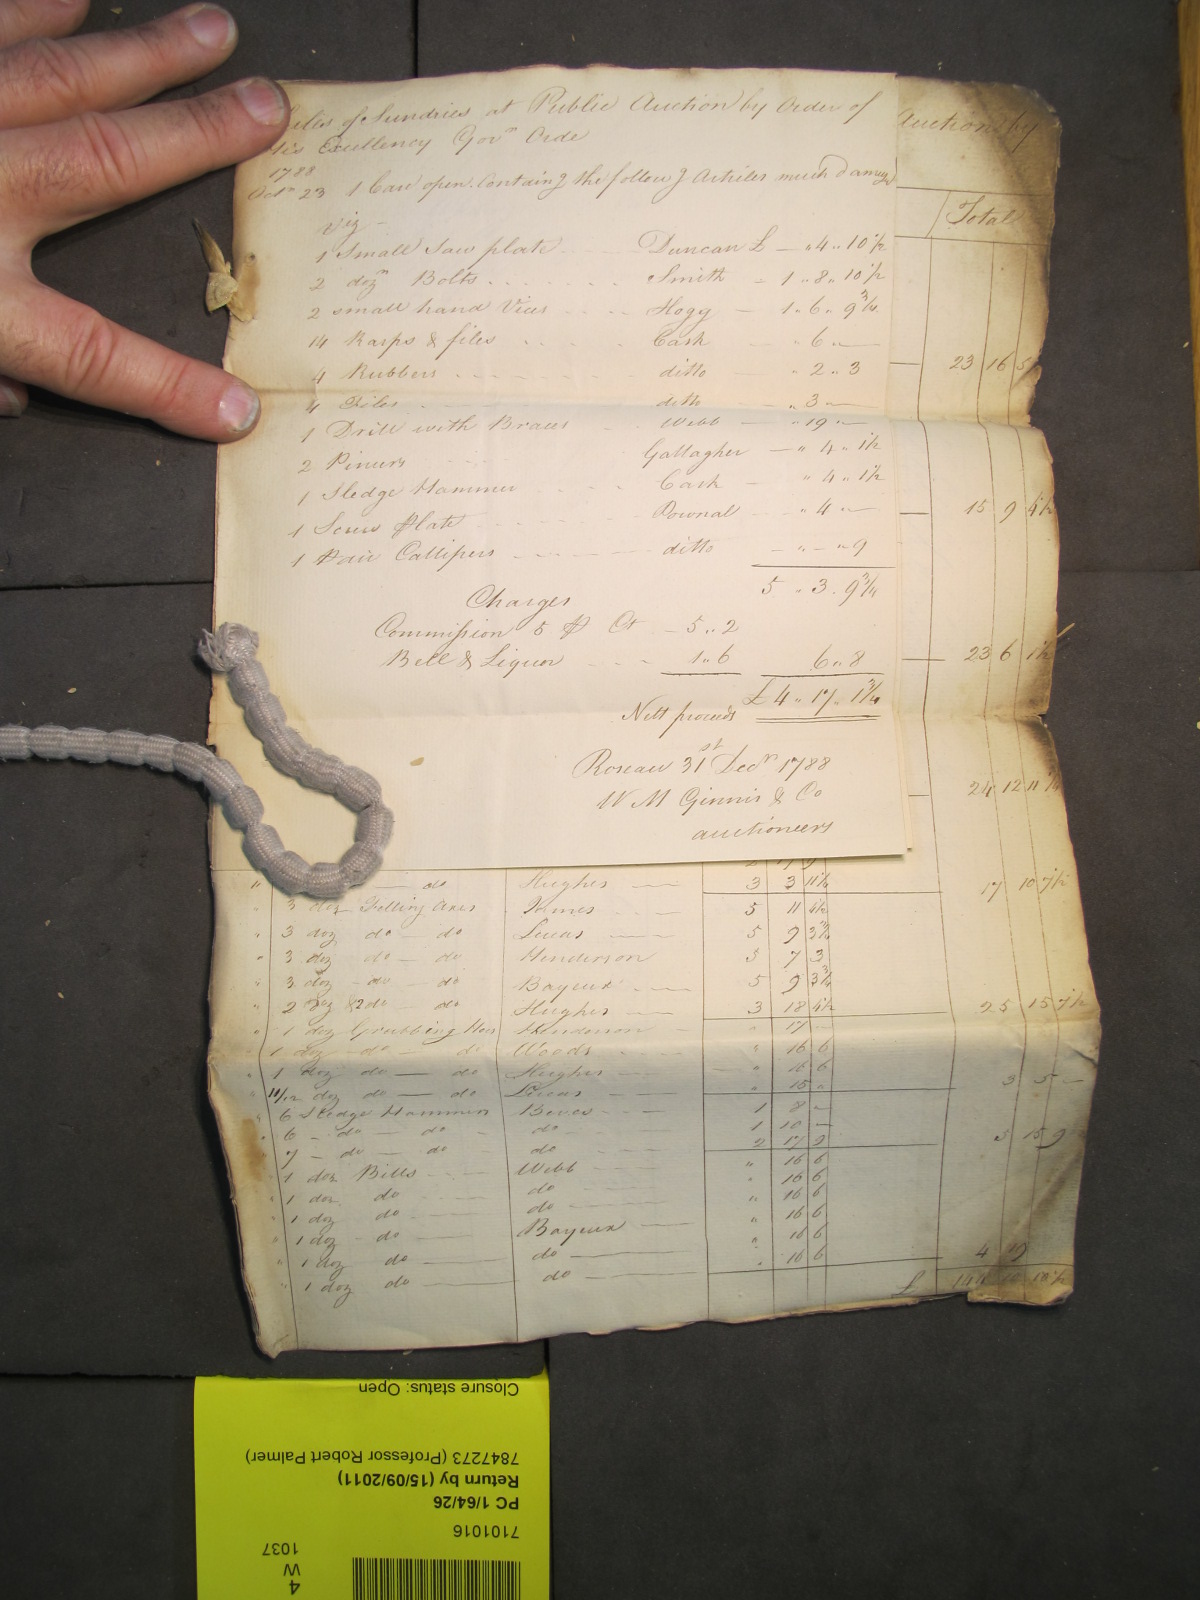 Sales of Sundries at Public Auction by Order of
His Excellency Govr Orde
1788
Octr 23 1 Case open Containg the followg Articles much Damagd
viz
1 Small Saw plate Duncan £ — " 4 " 10 1/2
2 dozn Bolts Smith — 1 " 8 " 10 1/2
2 small hand Vices Hogg — 1 " 6 " 9 3/4
14 Rasps & files Cash — " 6 " —
4 Rubbers ditto " 2 " 3
4 Files ditto " 3 " —
1 Drill with Braces Webb — " 19 " —
2 Pincers Gallagher — " 4 " 1 1/2
1 Sledge Hammer Cash — " 4 " 1 1/2
1 Screw Plate Pownal — " 4 " —
1 Pair Callipers ditto — " — " 9
5 " 3 " 9 3/4
Charges
Commission 5 P Ct — 5 " 2
Bell & Liquor 1 " 6 6 " 8
Nett proceeds £ 4 " 17 " 1 3/4
Roseau 31st Decr 1788
W M Ginnis & Co
auctioneers
Auction by
Total
23 16
15 9 4 1/2
23 6 1 1/2
24 12 11 1/4
" do Hughes 3 3 11 1/2 17 10 7 1/2
3 doz Felling Axes 5 11 4 1/2
" 3 doz do — do Lucas 5 9 3 3/4
" 3 doz do — do Henderson 5 7 3
" 3 doz do — do Bayeux 5 9 3 3/4
" 2 doz & 2 do — do Hughes 3 18 4 1/2 25 15 7 1/2
" 1 doz Grubbing Hoes Henderson " 17 —
" 1 doz do — do Woods " 16 6
" 1 doz do — do Hughes " 16 6
" 11/12 doz do — do Lucas " 15 " 3 5 —
" 6 Sledge Hammers 1 8 —
" 6 — do — do do 1 10 —
" 7 — do — do do 2 17 9 5 15 9
1 doz Bills Webb " 16 6
" 1 doz do do " 16 6
" 1 doz do do " 16 6
" 1 doz do Bayeux " 16 6
" 1 doz do do " 16 6
" 1 doz do do " 16 6 4 19
£
Closure status: Open
7847273 (Professor Robert Palmer)
Return by (15/09/2011)
PC 1/64/26
7101016
1037
W
4